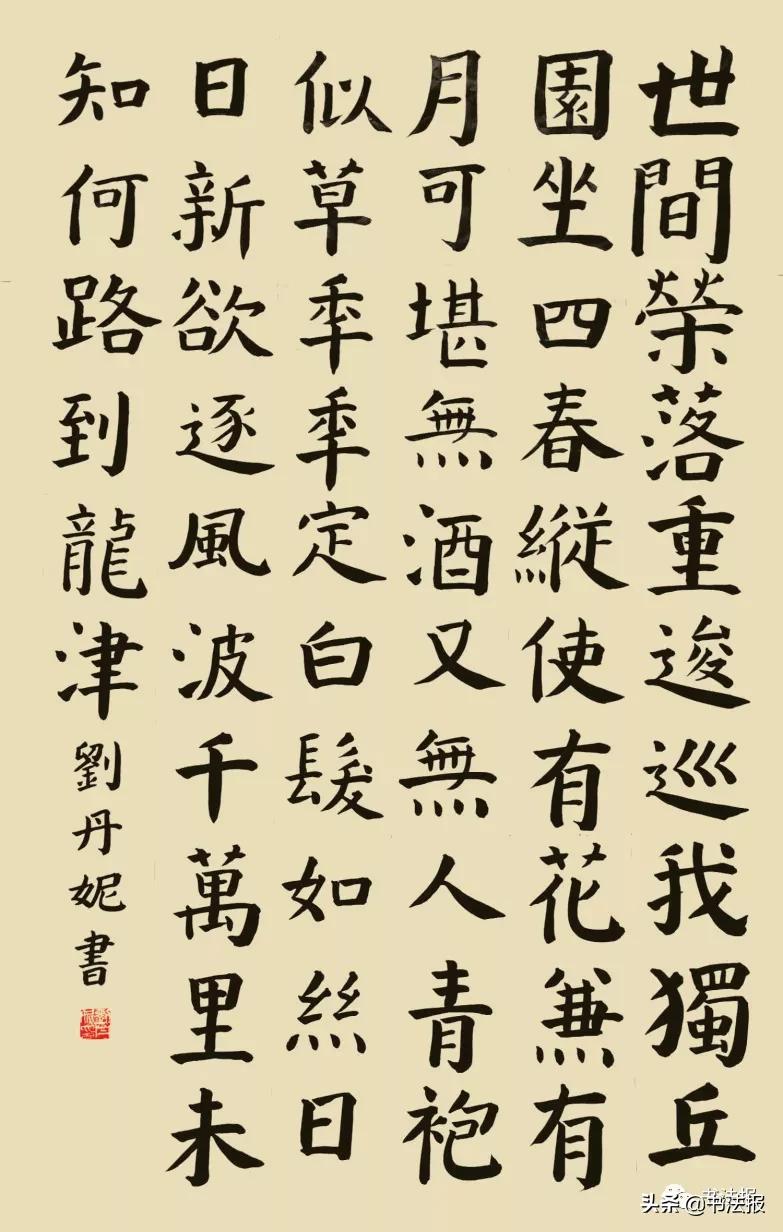 世間榮落重逡巡我獨丘
園坐四春縱使有花兼有
月可堪無酒又無人青袍
似草秊秊定白髮如絲日
日新欲逐風波千萬里未
知何路到龍津
劉丹妮書
书法报
头条 @书法报